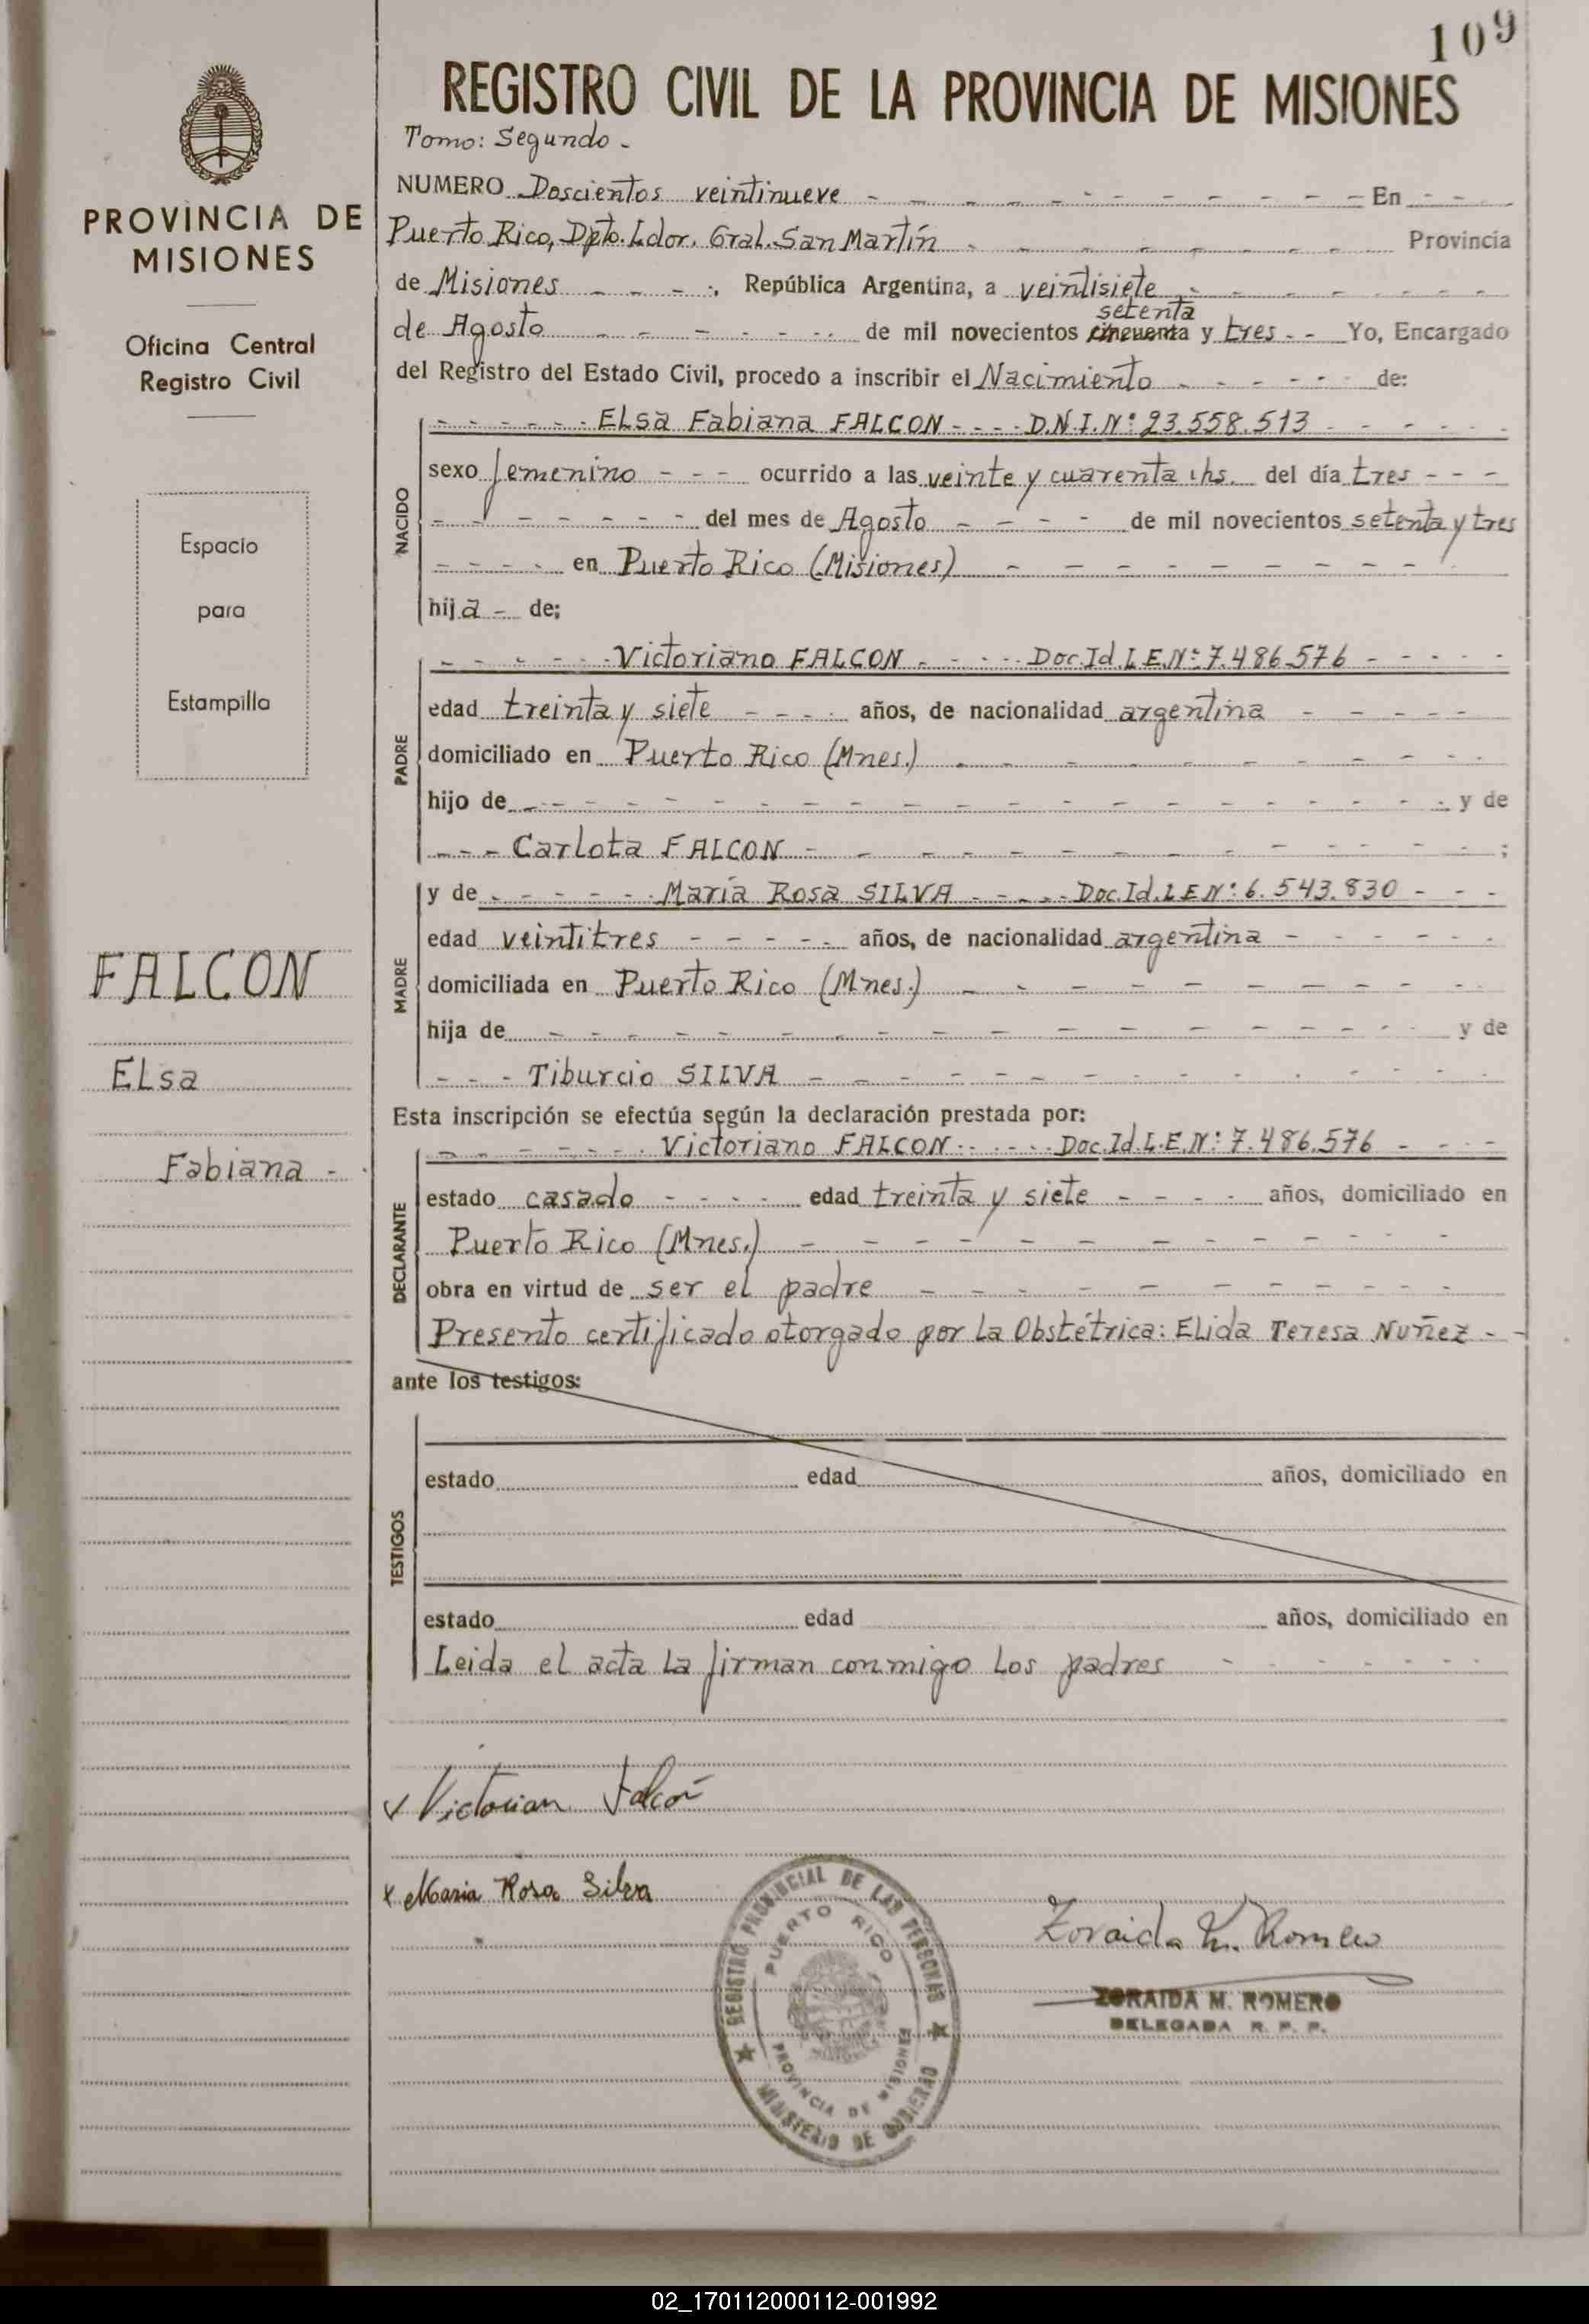 109
REGISTRO CIVIL DE LA PROVINCIA DE MISIONES
Tomo: Segundo -
NUMERO Doscientos veintinueve - - - - - - - - - - En - - -
Puerto Rico, Dpto. Ldor. Gral. San Martín - - - - - - - - Provincia
de Misiones - - - -, República Argentina, a veintisiete - - - - - - - -
setenta
de Agosto - - - - - - - de mil novecientos cincuenta y tres - - Yo, Encargado
del Registro del Estado Civil, procedo a inscribir el Nacimiento - - - - - - de:
NACIDO
- - - - - - ELsa Fabiana FALCON - - - - D.N.I.Nº 23.558.513 - - - - -
sexo femenino - - - ocurrido a las veinte y cuarenta hs. del día tres - - -
- - - - - - - - del mes de Agosto - - - - de mil novecientos setenta y tres
- - - - - en Puerto Rico (Misiones) - - - - - - - - -
hija - de;
PADRE
- - - - - - Victoriano FALCON - - - - - Doc.Id.L.E.Nº 7.486.576 - - - - -
edad treinta y siete - - - - años, de nacionalidad argentina - - - - -
domiciliado en Puerto Rico (Mnes.) - - - - - - - - - -
hijo de - - - - - - - - - - - - - - - - - y de
- - - Carlota FALCON - - - - - - - - - - - ;
MADRE
y de - - - - - - Maria Rosa SILVA - - - - - Doc.Id.L.E.Nº 6.543.830 - - -
edad veintitres - - - - - - años, de nacionalidad argentina - - - - - -
domiciliada en Puerto Rico (Mnes.) - - - - - - - - - -
hija de - - - - - - - - - - - - - - - y de
- - - - Tiburcio SILVA - - - - - - - - - - - -
Esta inscripción se efectúa según la declaración prestada por:
DECLARANTE
- - - - - - - Victoriano FALCON - - - - - Doc.Id.L.E.Nº 7.486.576 - - - -
estado casado - - - - - edad treinta y siete - - - - años, domiciliado en
Puerto Rico (Mnes.) - - - - - - - - - - - -
obra en virtud de ser el padre - - - - - - - - - -
Presento certificado otorgado por la Obstétrica: ELida Teresa Nuñez - -
ante los testigos:
TESTIGOS
estado edad años, domiciliado en
estado edad años, domiciliado en
Leida el acta la firman conmigo los padres - - - - - - -
x Victorian Falcón
x Maria Rosa Silva
Zoraida M. Romero
ZORAIDA M. ROMERO
DELEGADA R. P. P.
REGISTRO PROVINCIAL DE LAS PERSONAS
PUERTO RICO
PROVINCIA DE MISIONES
MINISTERIO DE GOBIERNO
PROVINCIA DE
MISIONES
Oficina Central
Registro Civil
Espacio
para
Estampilla
FALCON
ELsa
Fabiana -
02_170112000112-001992